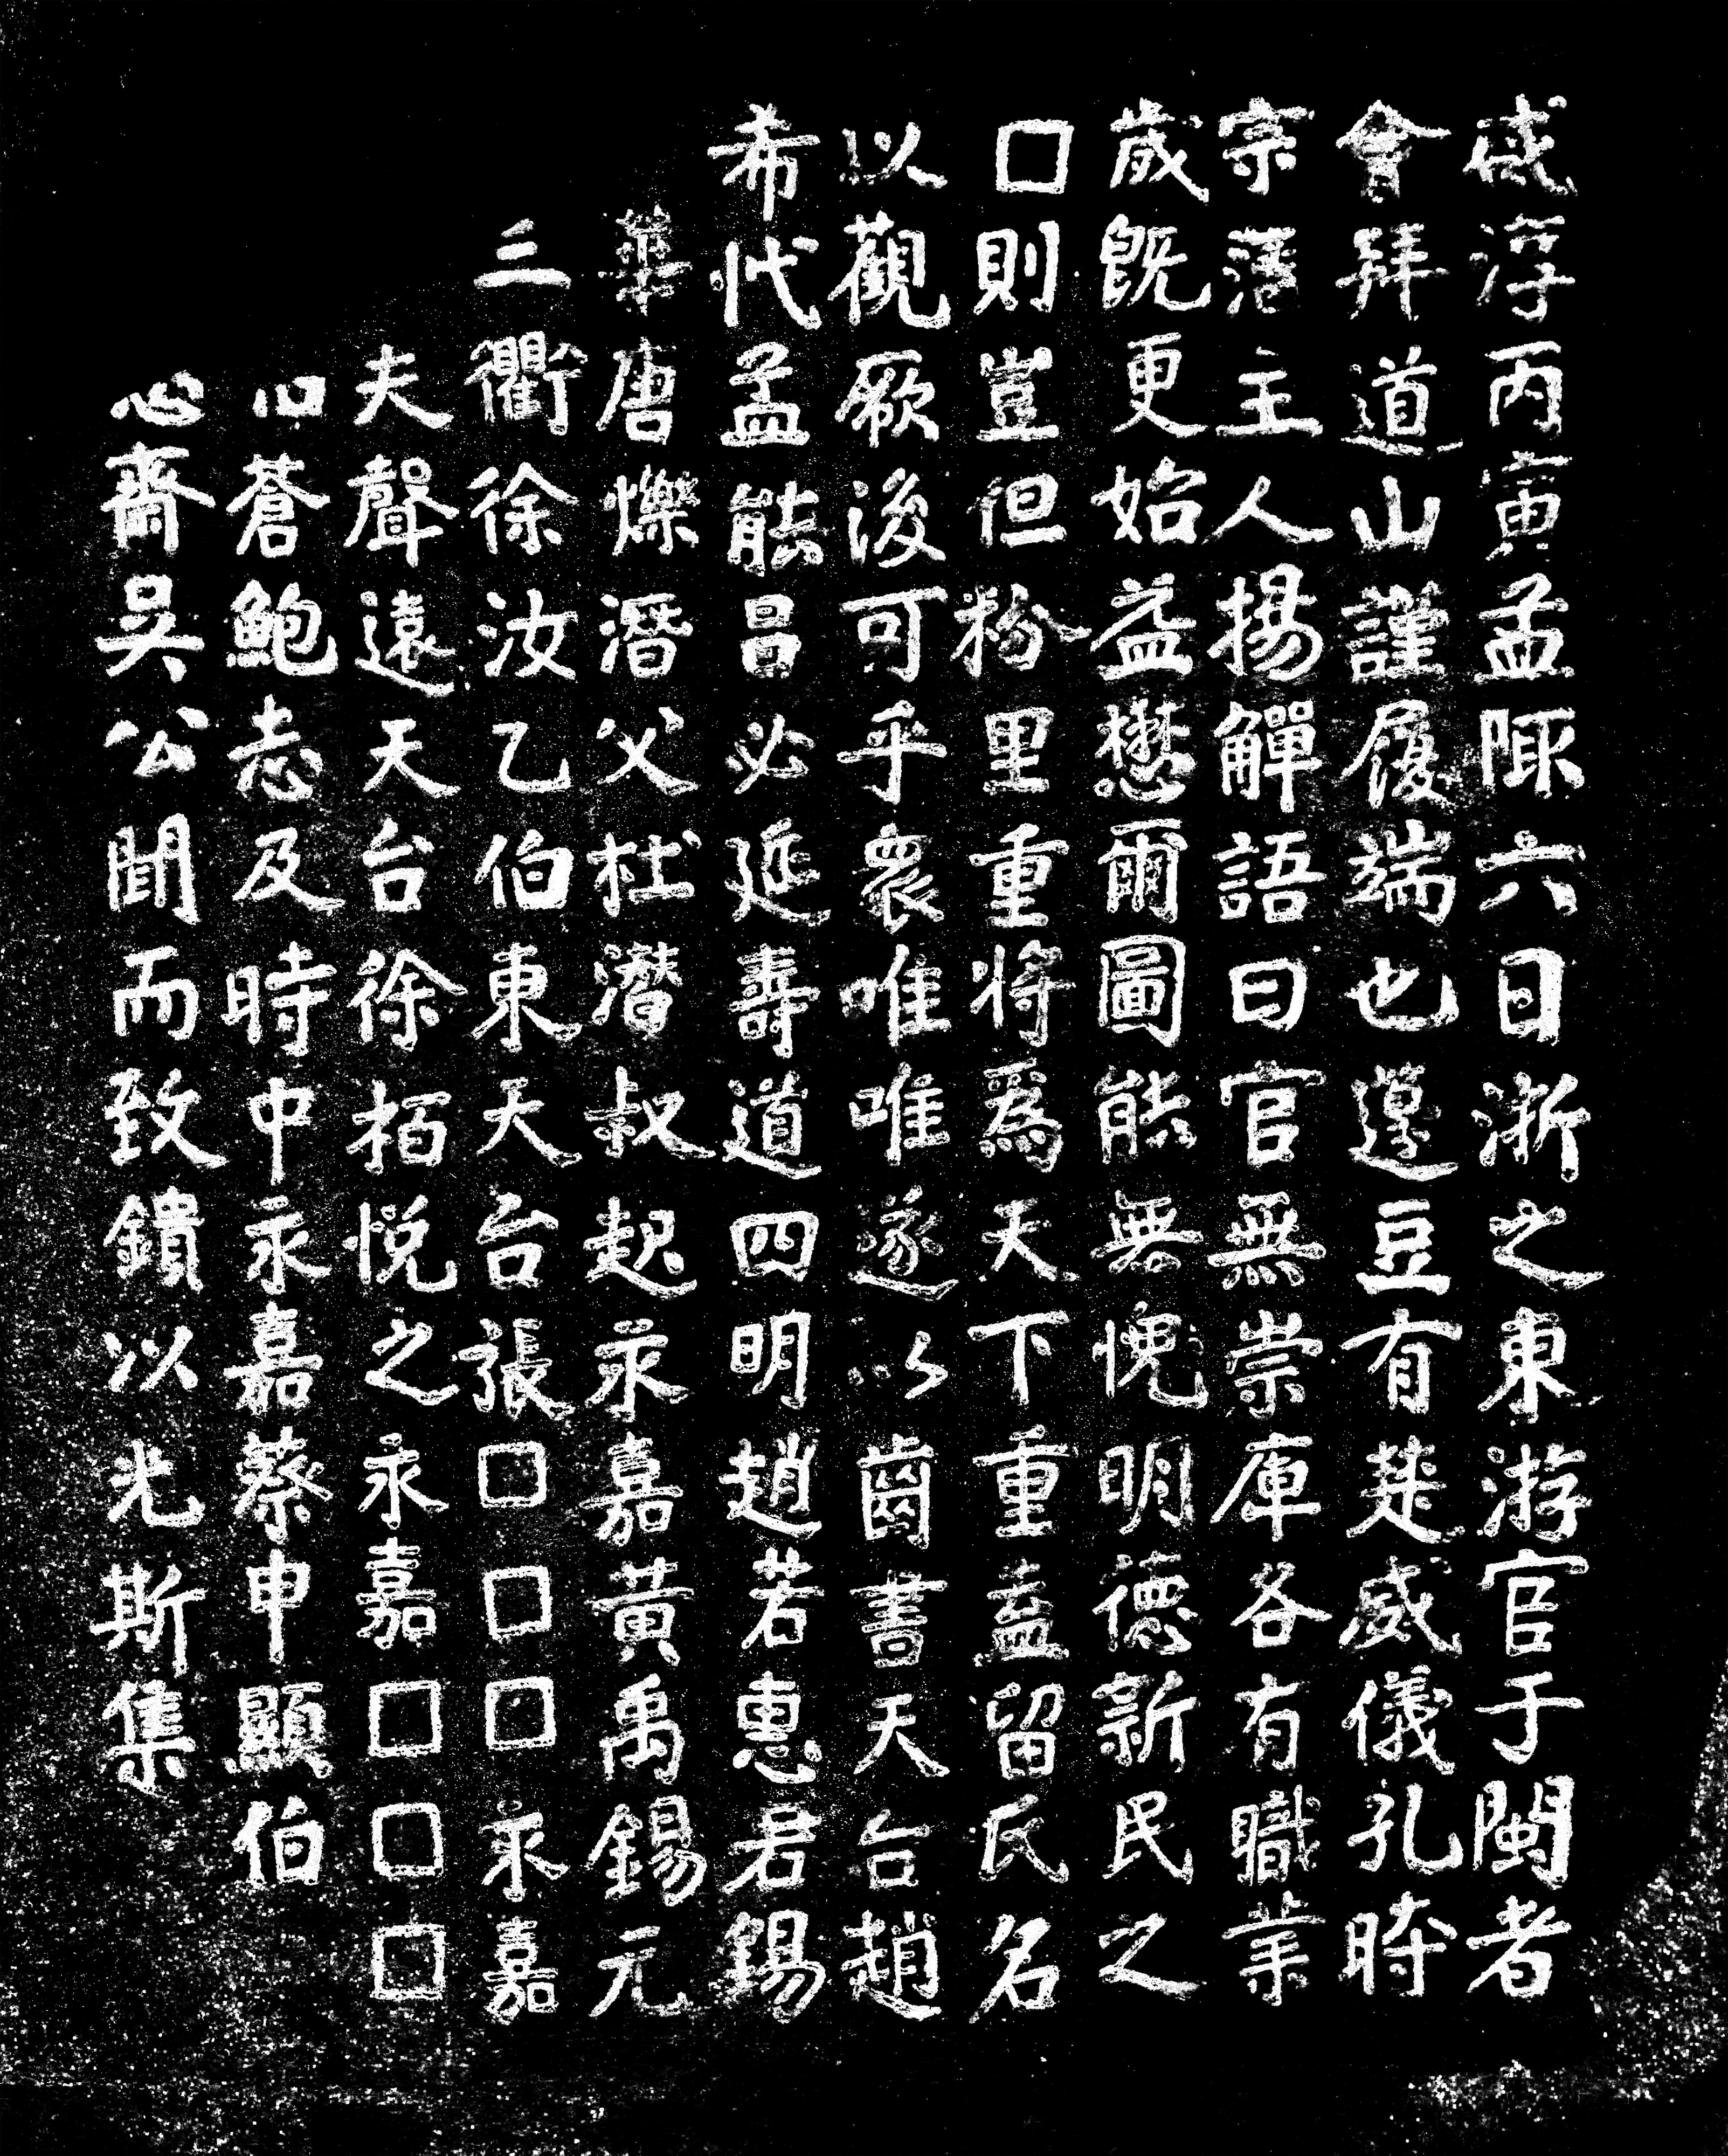 咸淳丙寅孟陬六日浙之東游官于閩者
會拜道山謹履端也籩豆有楚威儀孔時
宗藩主人揚觶語曰官無崇庳各有職業
歲既更始益懋爾圖能無愧明德新民之
□則豈但枌里重將爲天下重盍留氏名
以觀厥後可乎衆唯唯遂以齒書天台趙
希代孟能呂必延壽道四明趙若惠君錫
華唐爍潛父杜濳叔起永嘉黃禹錫元
三衢徐汝乙伯東天台張□□□永嘉
夫聲遠天台徐栢悅之永嘉□□□
蒼鮑志及時中永嘉蔡申顯伯
心齋吳公聞而致鐀以光斯集